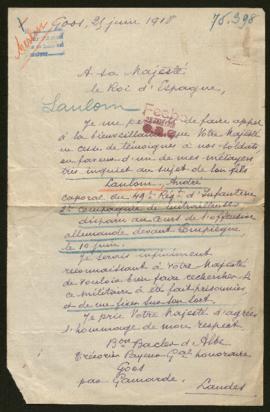 Goos, 21 juin 1918
75.398
A Sa Majesté
le Roi d'Espagne,
Laulom
Je me permets de faire appel
à la bienveillance que Votre Majesté
ne cesse de témoigner à nos soldats
en faveur d'un de mes métayers
très inquiet au sujet de son fils
Laulom, André
caporal du 49e Rég.t d'Infanterie
2e Compagnie de mitrailleuses
disparu au cours de l'offensive
allemande devant Compiègne
le 10 juin.
Je serais infiniment
reconnaissant à Votre Majesté
de vouloir bien faire rechercher si
ce militaire a été fait prisonnier
et de me fixer sur son sort.
Je prie Votre Majesté d'agréer
l'hommage de mon respect
Bon Bacler d'Albe
Trésorier Payeur Gal honoraire
Goos
par Gamarde. Landes